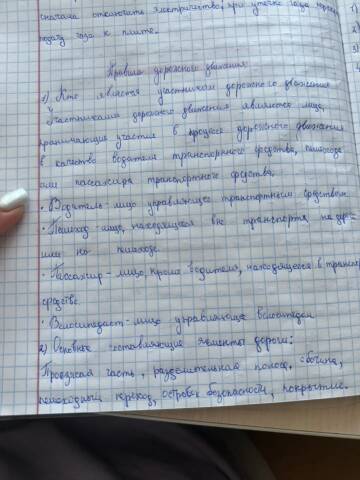 сначала отключить электричество, при утечке газа
подачу газа к плите.
Правила дорожного движения
1) Кто является участником дорожного движения
Участниками дорожного движения являются лица,
принимающие участие в процессе дорожного движения
в качестве водителя транспортного средства, пешехода
или пассажира транспортного средства.
• Водитель - лицо управляющее транспортным средством
• Пешеход - лицо, находящееся вне транспорта на
или на пешеходе
• Пассажир - лицо, кроме водителя, находящееся в
средстве.
• Велосипедист - лицо управляющее велосипедом
2) Основные составляющие элементы дороги:
Проезжая часть, разделительная полоса, обочина,
пешеходный переход, островок безопасности, покрытие.
1)
2)
3)
4